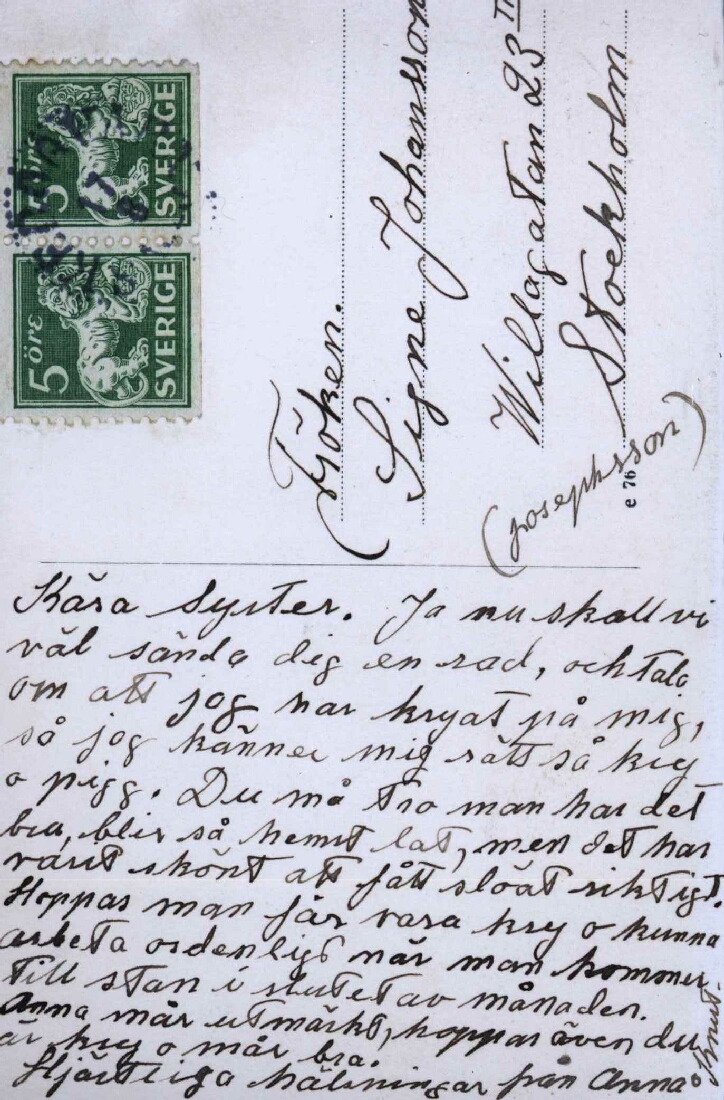 5 ÖRE SVERIGE
5 ÖRE SVERIGE
17 8
Fröken.
Signe Johansson
Villagatan 23 II
Stockholm
(Josephsson)
e 76
Kära Syster. Ja nu skall vi
väl sända dig en rad, och tala
om att jag har kryat på mig,
så jag känner mig rätt så kry
o pigg. Du må tro man har det
bra, blir så hemst lat, men det har
varit skönt att fått slöat riktigt.
Hoppas man får vara kry o kunna
arbeta ordenligt när man kommer
till stan i slutet av månaden.
Anna mår utmärkt, hoppas även du
är kry o mår bra.
Hjärtliga hälsningar från Anna o Knut.